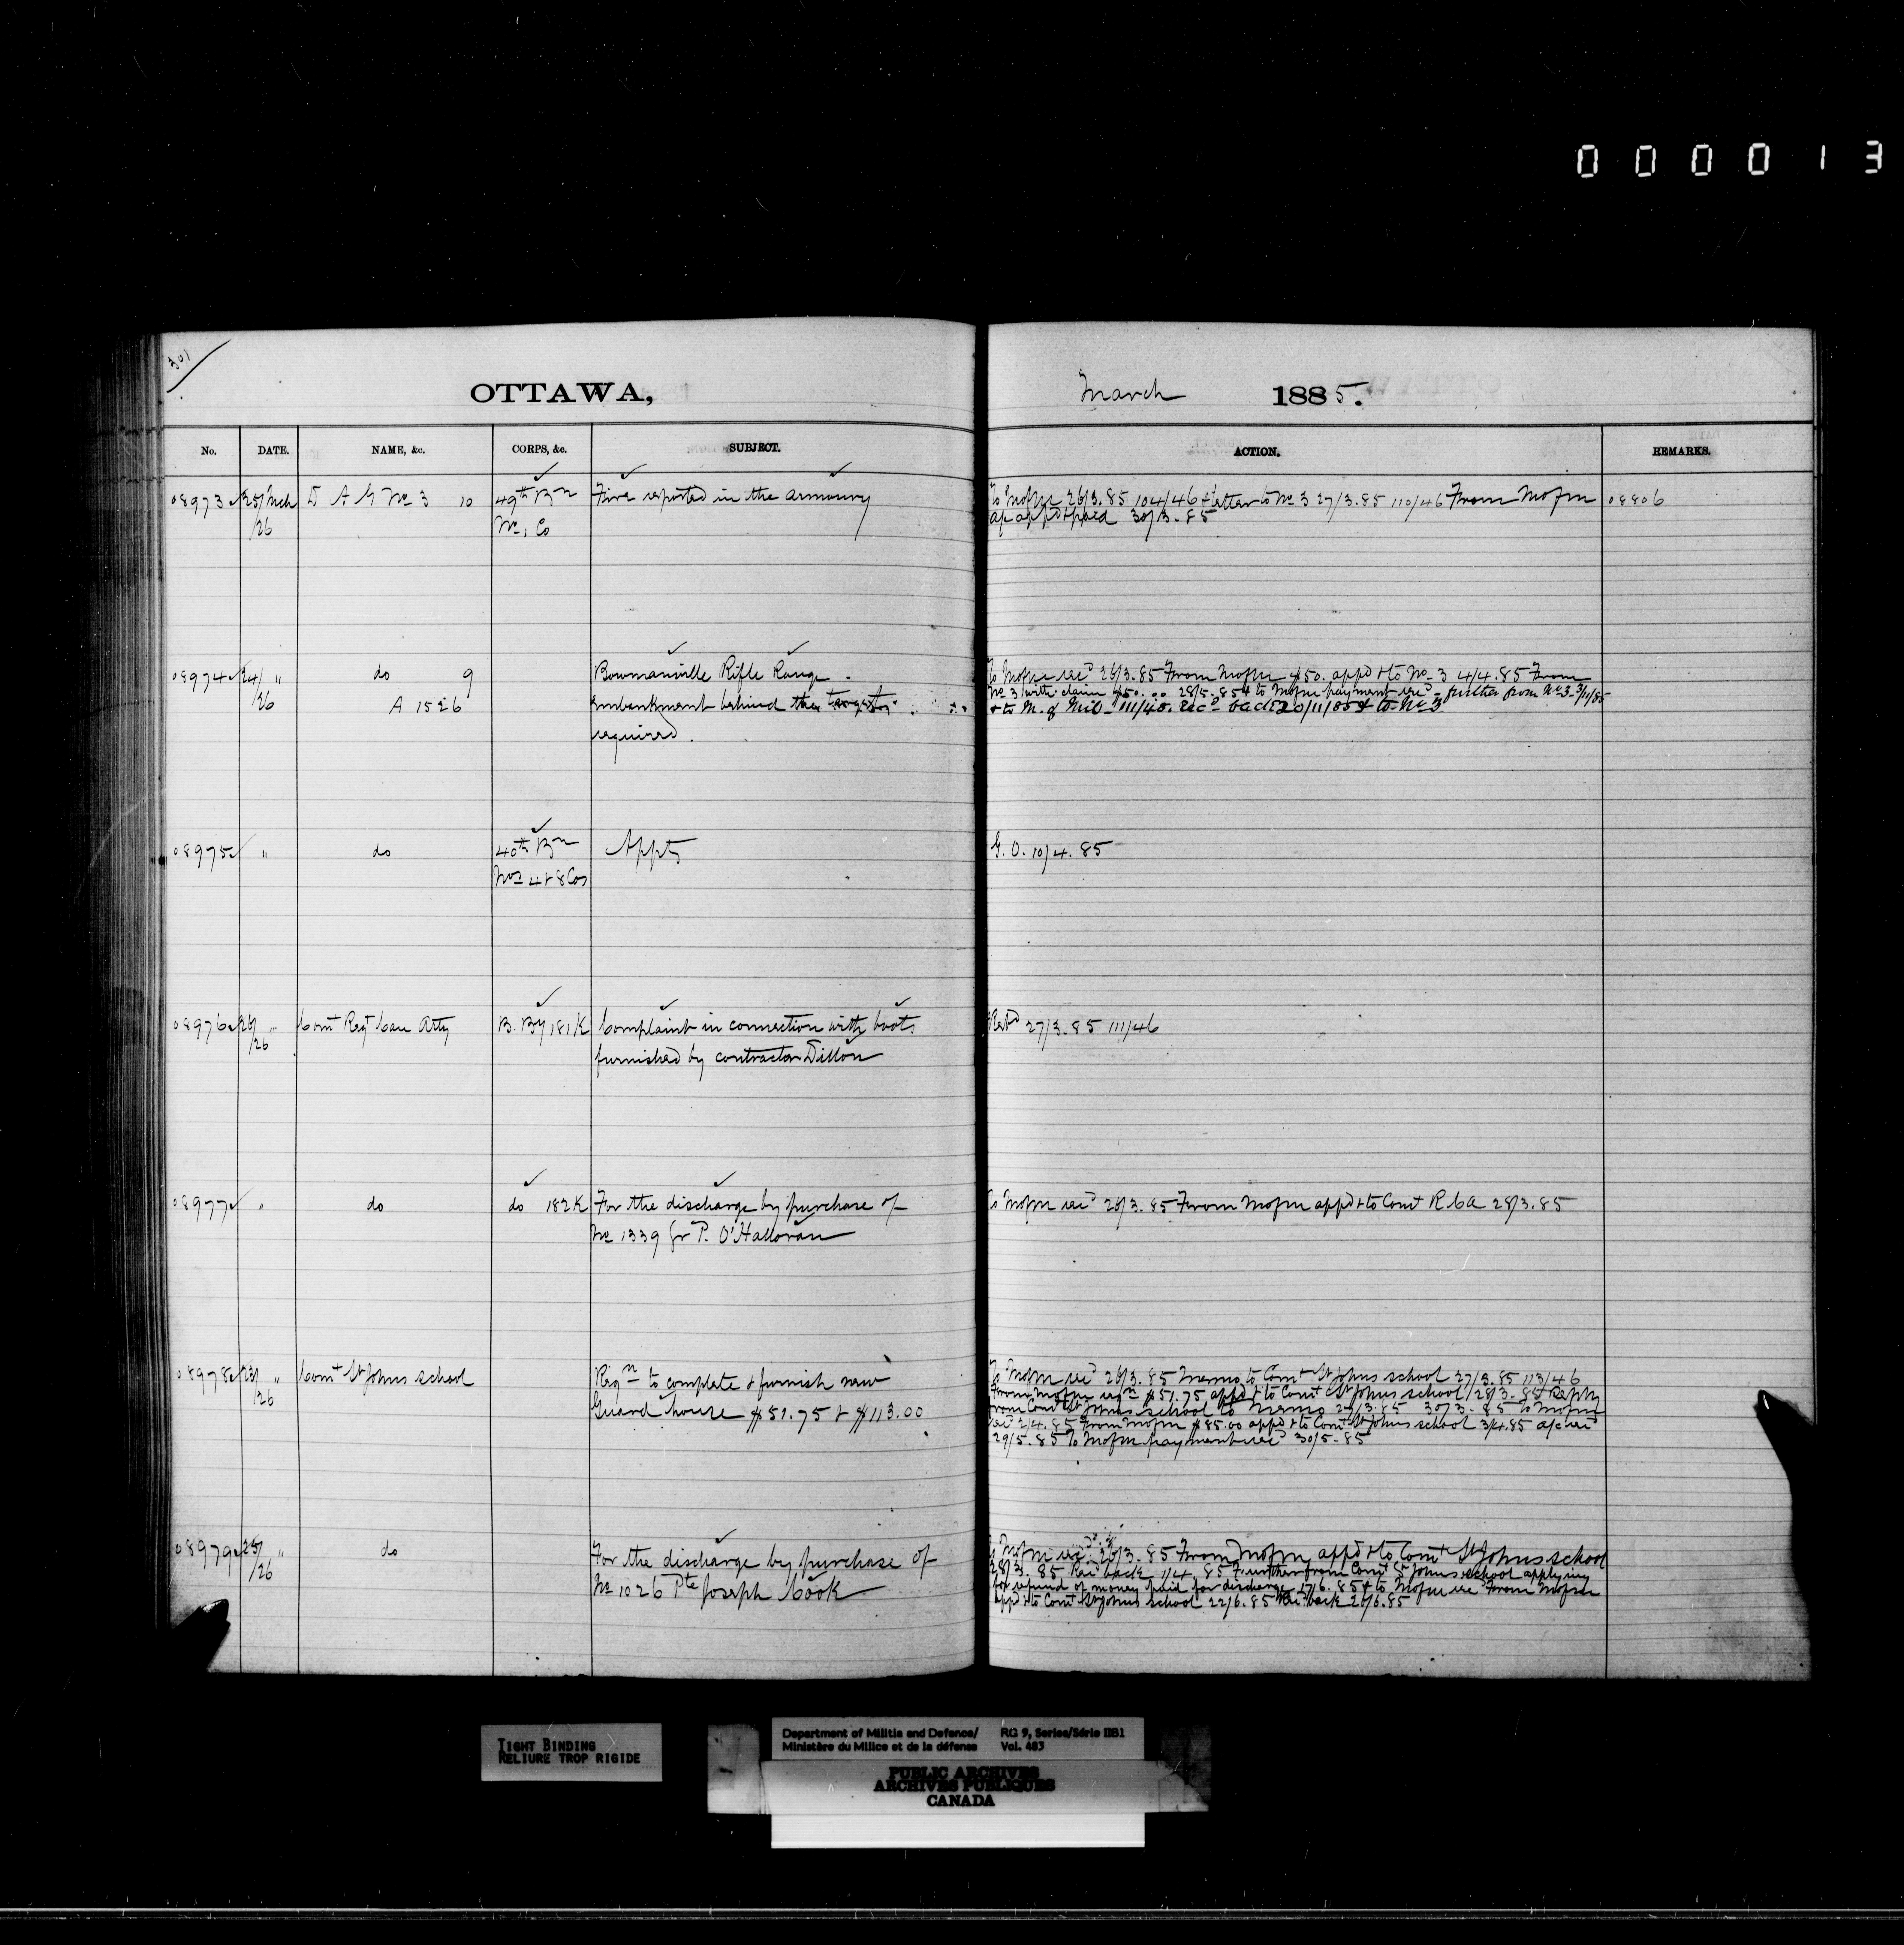 0 0 0 0 1 3
301
OTTAWA,
March 1885.
No. DATE. NAME, &c. CORPS, &c. SUBJECT. ACTION. REMARKS.
08973 25/Mch D A G No 3 10 49th Bn Fire reported in the armoury
/26 No 1 Co
To Mofm 26/3.85 104/46 + letter to No 3 27/3.85 110/46 From Mofm 08806
a/c app'd + paid 30/3.85
08974 24/ " do 9 Bowmanville Rifle Range.
/26 A 1526 Embankment behind the targets
required.
To Mofm rec'd 26/3.85 From Mofm $50. app'd + to No 3 4/4.85 From
No 3 with claim $50.00 28/5.85 + to Mofm payment rec'd - further from No 3 3/11/85
+ to M. of Mil - 111/48. Rec'd back 20/11/85 + to No 3
08975 " do 40th Bn Appts
Nos 4 + 8 Cos
G. O. 10/4.85
08976 26/ " Comt Regt Can Arty B. By 181K Complaint in connection with boots
/26 furnished by contractor Dillon
Retd 27/3.85 111/46
08977 " do do 182K For the discharge by purchase of
No 1339 Gr P. O'Halloran
To Mofm rec'd 26/3.85 From Mofm app'd + to Comt R C A 28/3.85
08978 23/ " Comt St Johns school Reqn to complete + furnish new
/26 Guard house $51.75 + $113.00
To Mofm rec'd 26/3.85 Memo to Comt St Johns school 27/3.85 113/46
From Mofm reqn $51.75 app'd + to Comt St Johns school 28/3.85 Reply
from Comt St Johns school to memo 27/3.85 30/3.85 To Mofm
rec'd 2/4.85 From Mofm $85.00 app'd + to Comt St Johns school 3/4.85 a/c rec'd
29/5.85 To Mofm payment rec'd 30/5.85
08979 25/ " do For the discharge by purchase of
/26 No 1026 Pte Joseph Cook
To Mofm rec'd 26/3.85 From Mofm app'd + to Comt St Johns school
28/3.85 Rec'd back 1/4.85 Further from Comt St Johns school applying
for refund of money paid for discharge 17/6.85 + to Mofm rec'd From Mofm
app'd + to Comt St Johns school 22/6.85 Rec'd back 26/6.85
TIGHT BINDING
RELIURE TROP RIGIDE
Department of Militia and Defence/ RG 9, Series/Série IIB1
Ministère du Milice et de la défense Vol. 483
PUBLIC ARCHIVES
ARCHIVES PUBLIQUES
CANADA